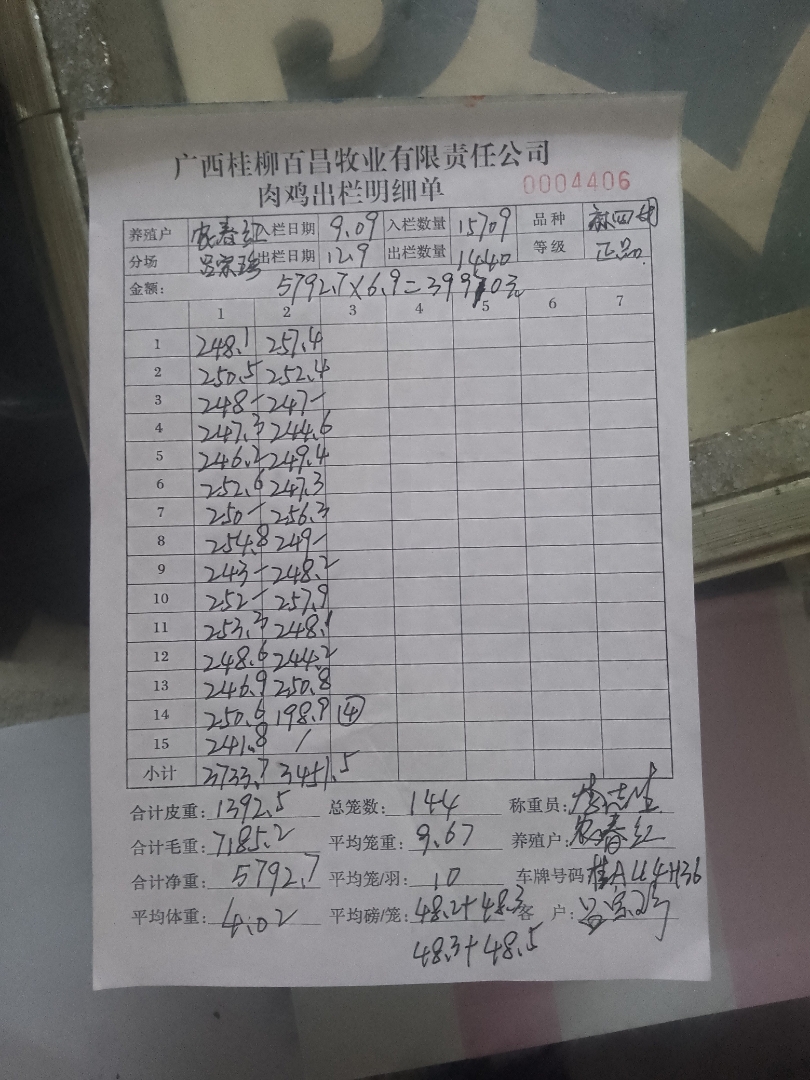 广西桂柳百昌牧业有限责任公司
肉鸡出栏明细单 0004406
养殖户 农春红 入栏日期 9.09 入栏数量 15709 品种
分场 出栏日期 12.9 出栏数量 1440 等级 正品.
金额: 5792.7×6.9=39970元
1 2 3 4 5 6 7
1 248.1 257.4
2 250.5 252.4
3 248- 247-
4 247.3 244.6
5 246.2 249.4
6 252.6 247.3
7 250- 256.3
8 254.8 249-
9 243- 248.2
10 252- 257.9
11 253.3 248.1
12 248.6 244.2
13 246.9 250.8
14 250.6 198.9 ④
15 241.8 /
小计 3733.7 3451.5
合计皮重: 1392.5 总笼数: 144 称重员:
合计毛重: 7185.2 平均笼重: 9.67 养殖户: 农春红
合计净重: 5792.7 平均笼/羽: 10 车牌号码
平均体重: 4.02 平均磅/笼: 48.2+48.3 客户:
48.3+48.5